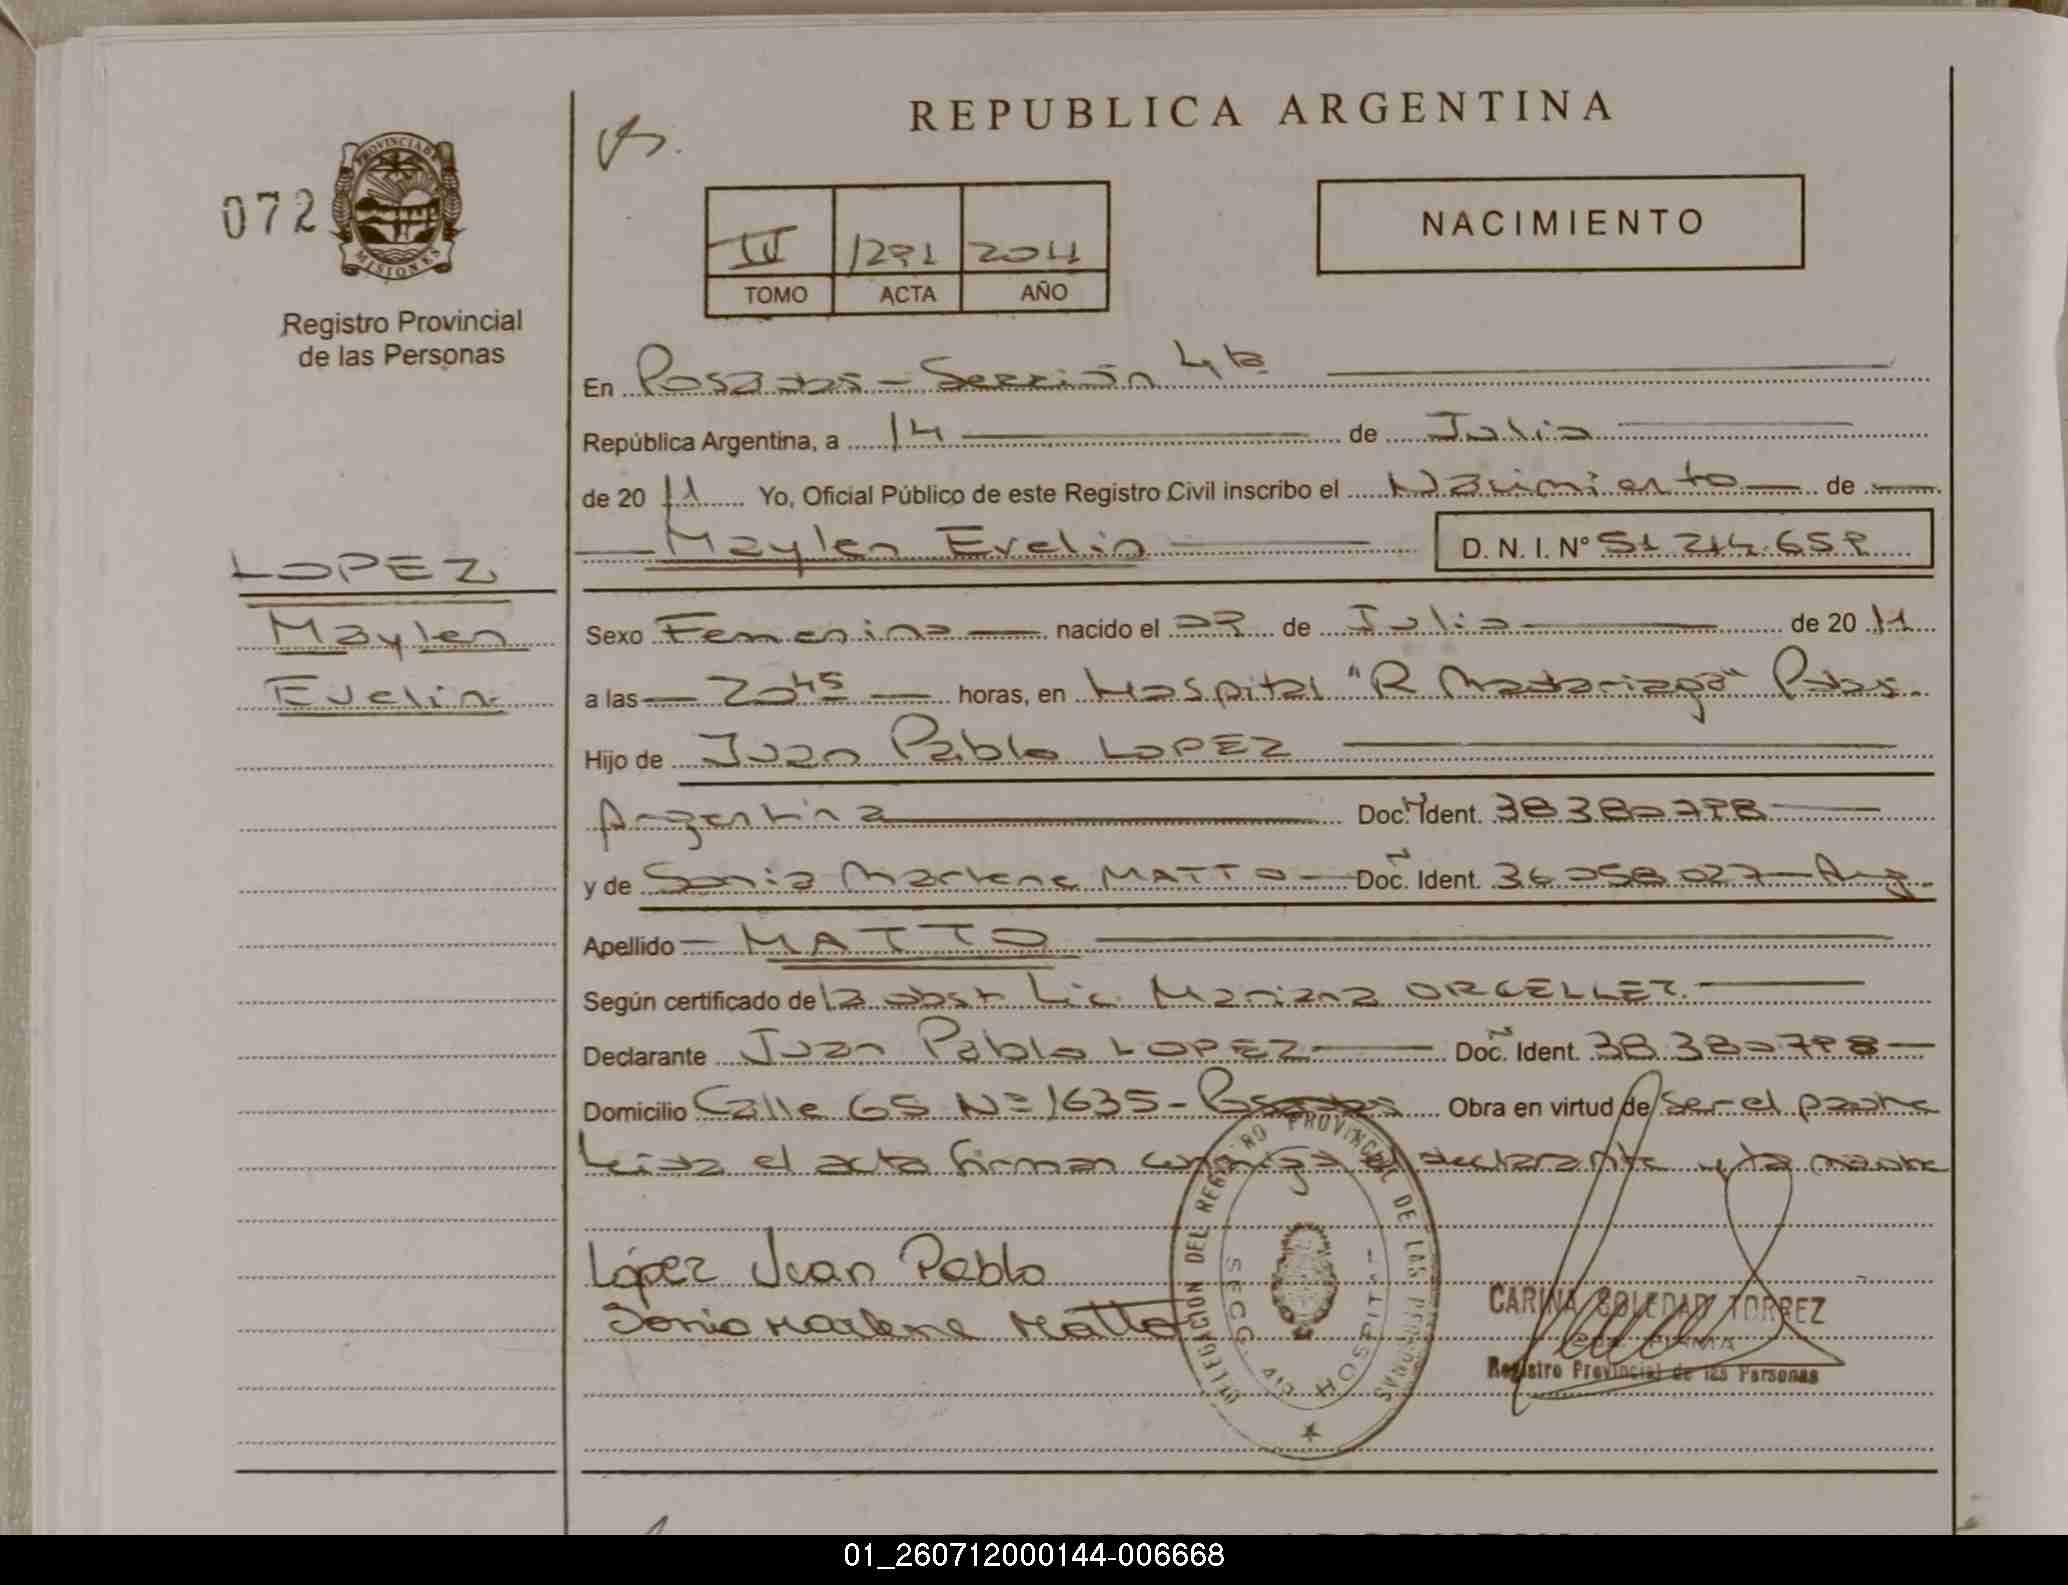 REPUBLICA ARGENTINA
072
PROVINCIA DE
MISIONES
Registro Provincial
de las Personas
IV 1291 2011
TOMO ACTA AÑO
NACIMIENTO
En Posadas - Sección 4ta
República Argentina, a 14 de Julio
de 2011 Yo, Oficial Público de este Registro Civil inscribo el Nacimiento de
Maylen Evelin D. N. I. Nº 51.214.659
LOPEZ
Maylen
Evelin
Sexo Femenino nacido el 09 de Julio de 2011
a las 20 45 horas, en Hospital "R Madariaga" Pdas.
Hijo de Juan Pablo LOPEZ
Argentina Doc. Ident. 38380798
y de Sonia Marlene MATTO Doc. Ident. 36058027 Arg.
Apellido MATTO
Según certificado de la obst Lic. Mariana ORCELLET.
Declarante Juan Pablo LOPEZ Doc. Ident. 38380798
Domicilio Calle 65 Nº 1635 - Posadas Obra en virtud de ser el padre
Leida el acta firman conmigo el declarante y la madre
López Juan Pablo
Sonia Marlene Matto
DELEGACION DEL REGISTRO PROVINCIAL DE LAS PERSONAS
SECC. HOSPITAL
CARINA SOLEDAD TORREZ
FIRMA
Registro Provincial de las Personas
01_260712000144-006668